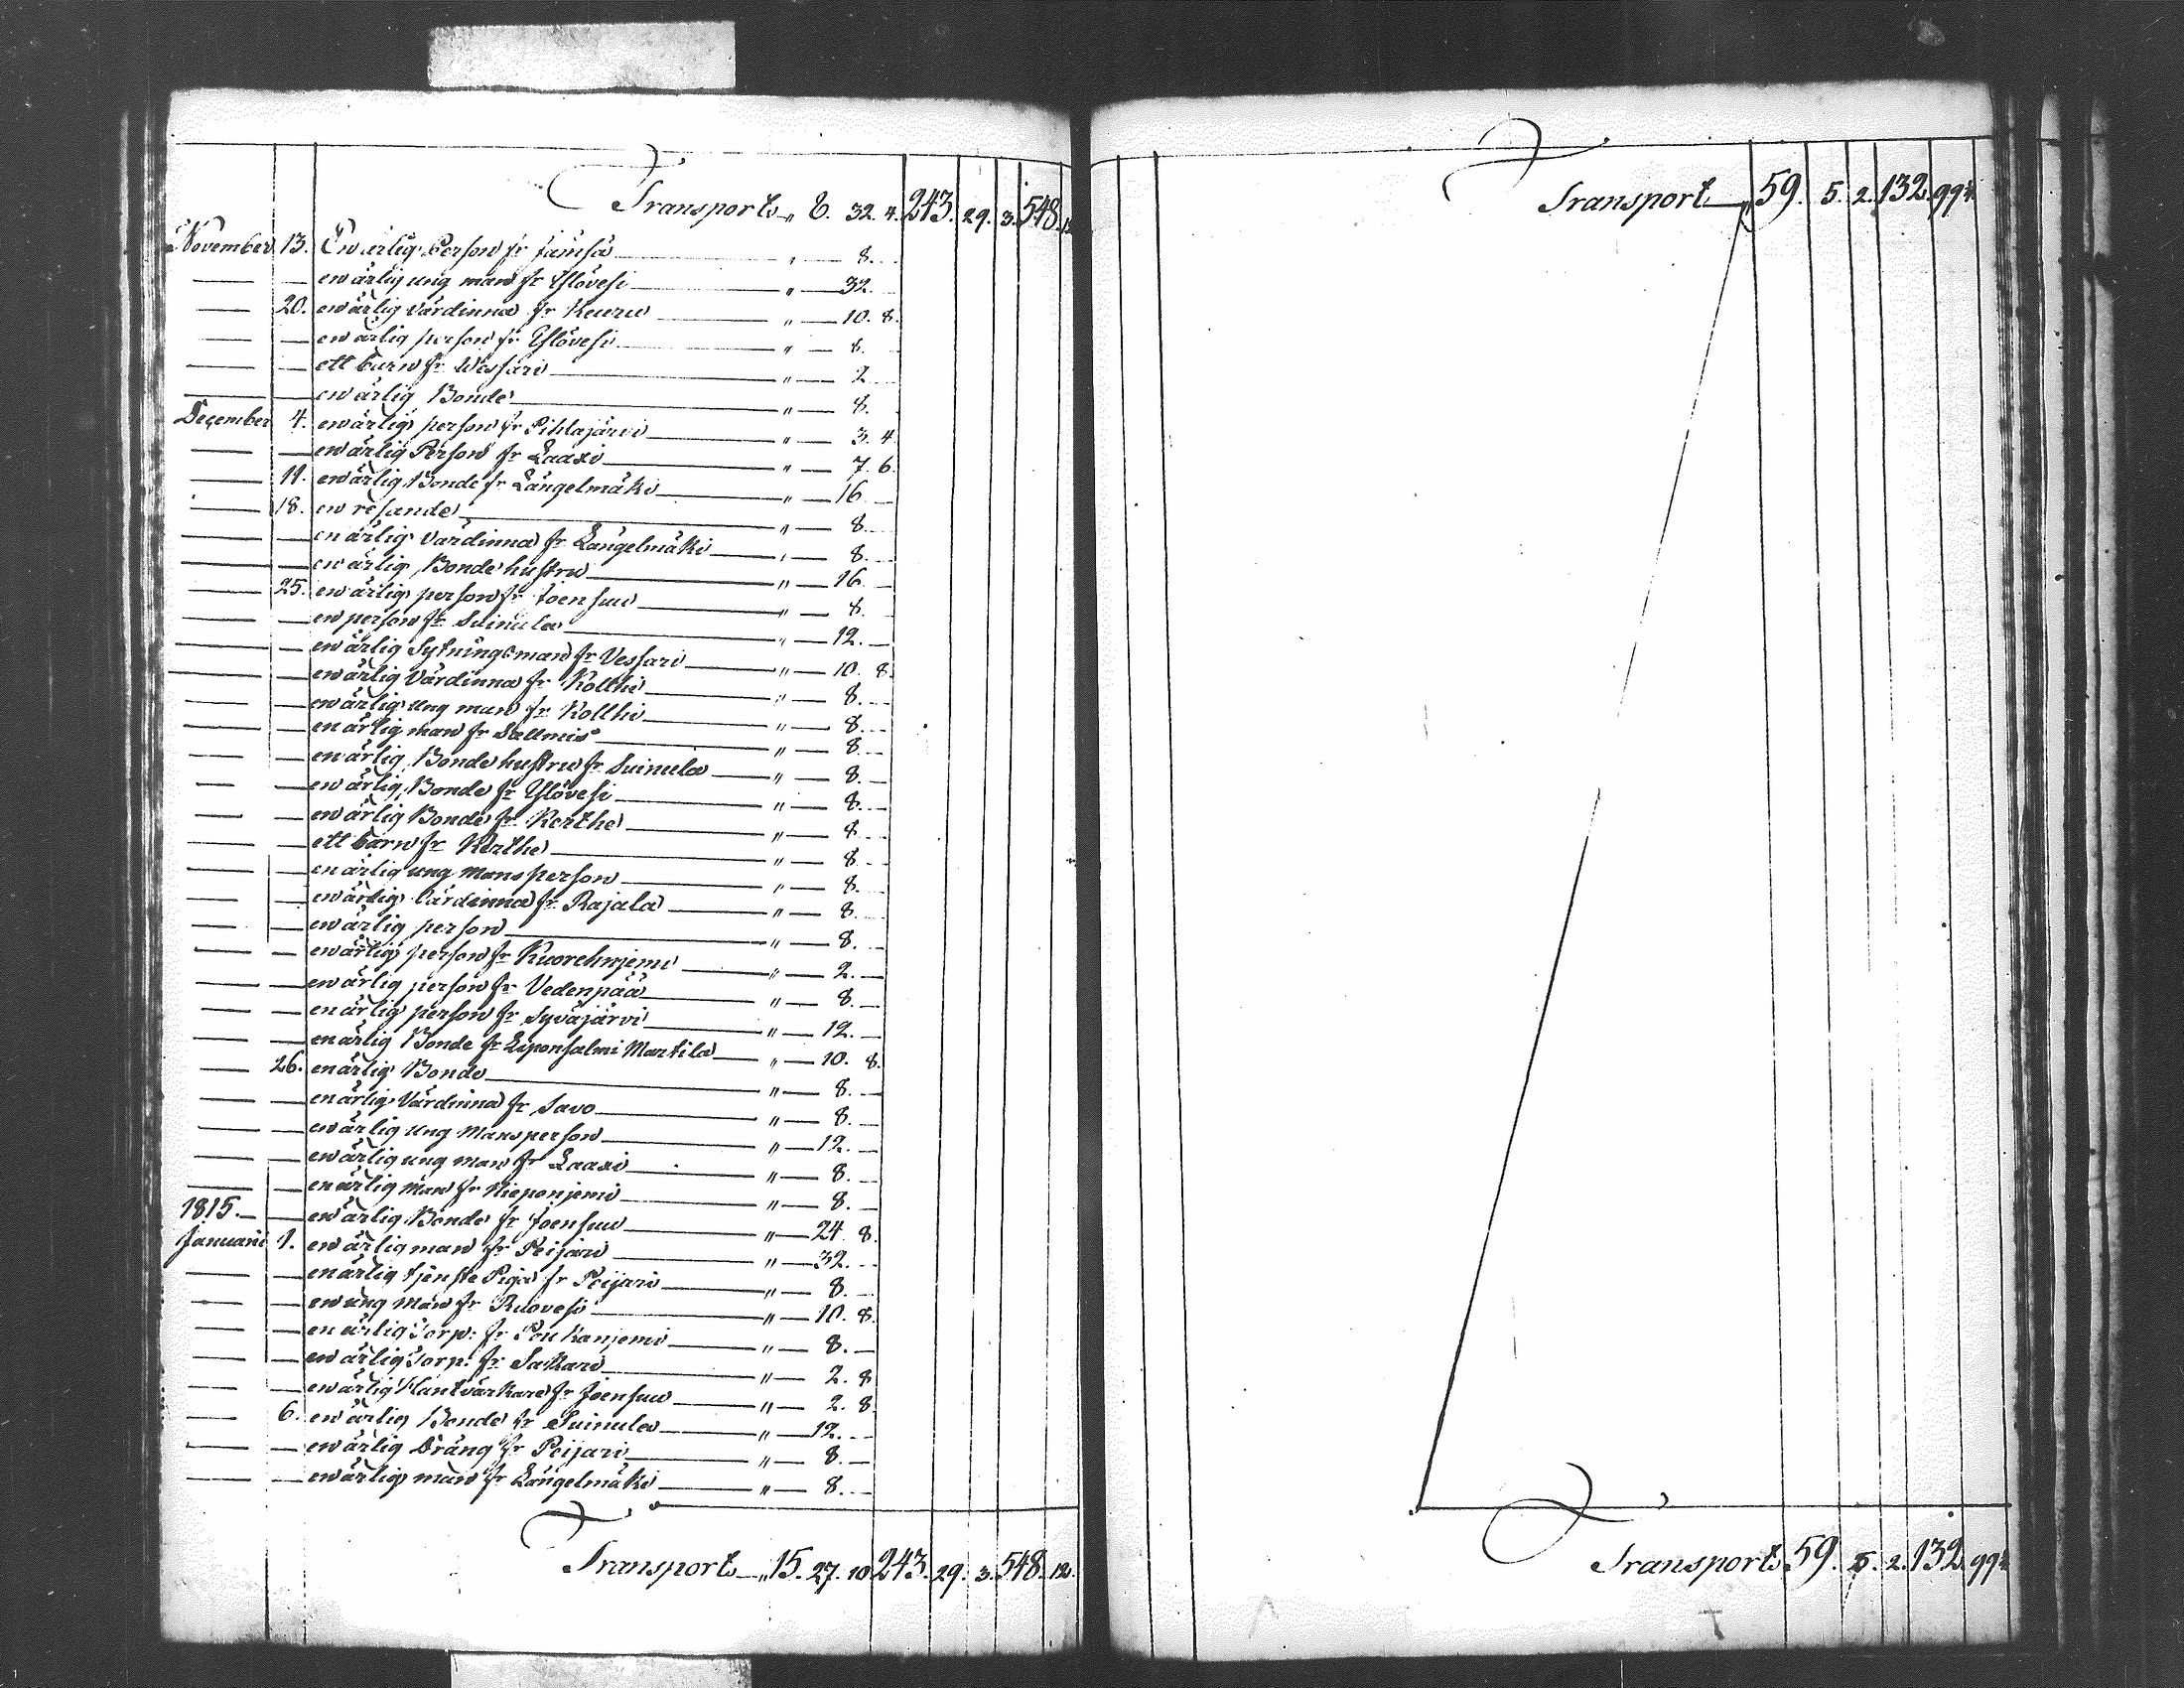 Transport „ 6. 32. 4. 243. 29. 3. 548. 12
November 13. En ärlig Person fr Jämsä „ — 8. —
— — en ärlig ung man fr Ylövesi „ — 32. —
— 20. en ärlig värdinna fr Keuru „ — 10. 8.
— — en ärlig person fr Ylövesi „ — 8. —
— — ett barn fr Wessari „ — 2 —
— — en ärlig Bonde „ — 8. —
December 4. en ärlig person fr Pihlajärvi „ — 3. 4
— — en ärlig Person fr Laaxi „ — 7. 6.
— 11. en ärlig Bonde fr Längelmäki „ — 16 —
— 18. en resande „ — 8. —
— — en ärlig värdinna fr Längelmäki „ — 8. —
— — en ärlig Bonde hustru „ — 16. —
— 25. en ärlig person fr Joensuu „ — 8. —
— — en person fr Suinula „ — 12. —
— — en ärlig Sytningsman fr Vessari „ — 10. 8.
— — en ärlig Värdinna fr Kolthi „ — 8. —
— — en ärlig ung man fr Kolthi „ — 8. —
— — en ärlig man fr Sallmis „ — 8. —
— — en ärlig Bonde hustru fr Suinula „ — 8. —
— — en ärlig Bonde fr Ylövesi „ — 8. —
— — en ärlig Bonde fr Kerthe „ — 8. —
— — ett barn fr Kerthe „ — 8. —
— — en ärlig ung mans person „ — 8. —
— — en ärlig Värdinna fr Rajala „ — 8. —
— — en ärlig person „ — 8. —
— — en ärlig person fr Kuorehnjemi „ — 2. —
— — en ärlig person fr Vedenpää „ — 8. —
— — en ärlig person fr Syväjärvi „ — 12. —
— — en ärlig Bonde fr Liponsalmi Martila „ — 10. 8.
— 26. en ärlig Bonde „ — 8. —
— — en ärlig Värdinna fr Savo „ — 8. —
— — en ärlig ung Mansperson „ — 12. —
— — en ärlig ung man fr Laaxi „ — 8. —
— — en ärlig Man fr Nieponjemi „ — 8. —
1815. — — en ärlig Bonde fr Joensuu „ — 24. 8.
Januarii 1. en ärlig man fr Peijari „ — 32. —
— — en ärlig tjenste Piga fr Peijari „ — 8. —
— — en ung Man fr Ruovesi „ — 10. 8.
— — en ärlig Torp: fr Poukanjemi „ — 8. —
— — en ärlig Torp: fr Sakari „ — 2. 8
— — en ärlig Hantvärkare fr Joensuu „ — 2. 8.
— 6. en ärlig Bonde fr Suinula „ — 12. —
— — en ärlig Dräng fr Peijari „ — 8. —
— — en ärlig man fr Längelmäki „ — 8. —
Transport „ 15. 27. 10 243. 29. 3. 548. 12.
Transport „ 59. 5. 2. 132. 99
Transport 59. 5. 2. 132. 99